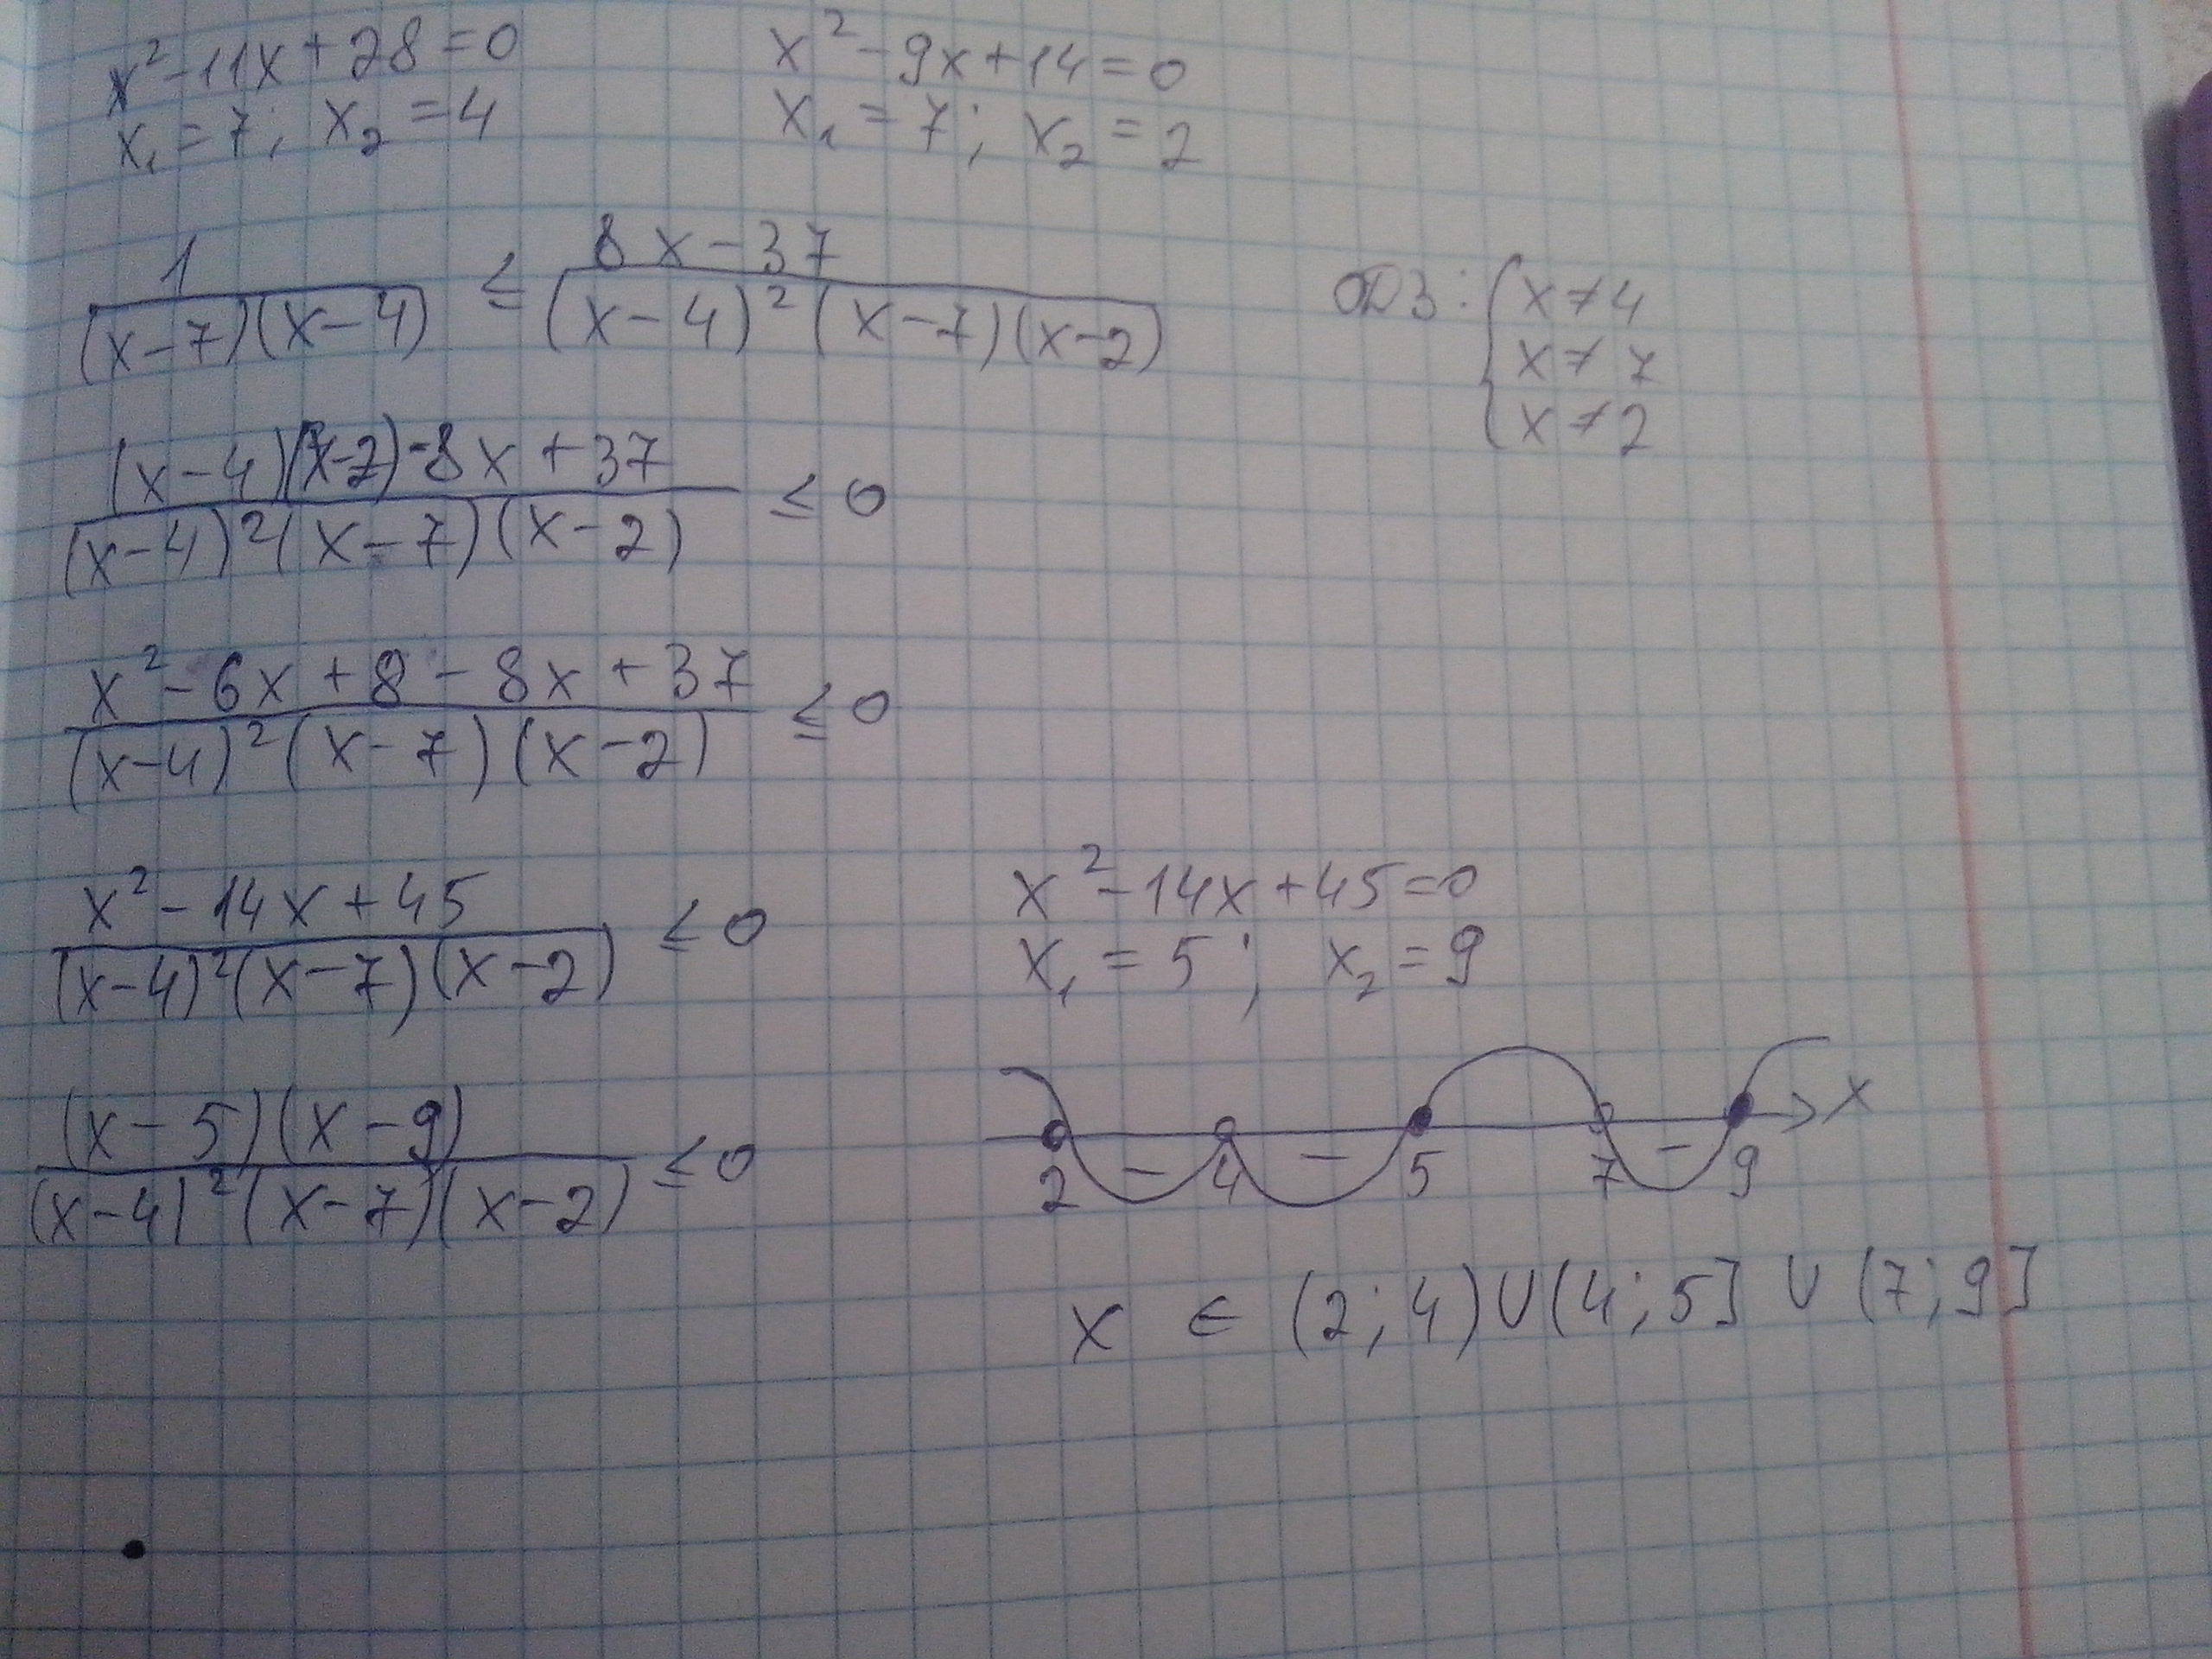 x² - 11x + 28 = 0
x₁ = 7; x₂ = 4
x² - 9x + 14 = 0
x₁ = 7; x₂ = 2
1/((x-7)(x-4)) ≤ (8x-37)/((x-4)²(x-7)(x-2))
ОДЗ: { x ≠ 4
x ≠ 7
x ≠ 2
((x-4)(x-2)-8x+37)/((x-4)²(x-7)(x-2)) ≤ 0
(x²-6x+8-8x+37)/((x-4)²(x-7)(x-2)) ≤ 0
(x²-14x+45)/((x-4)²(x-7)(x-2)) ≤ 0
x² - 14x + 45 = 0
x₁ = 5; x₂ = 9
((x-5)(x-9))/((x-4)²(x-7)(x-2)) ≤ 0
x
- - -
2 4 5 7 9
x ∈ (2;4)∪(4;5] ∪ (7;9]